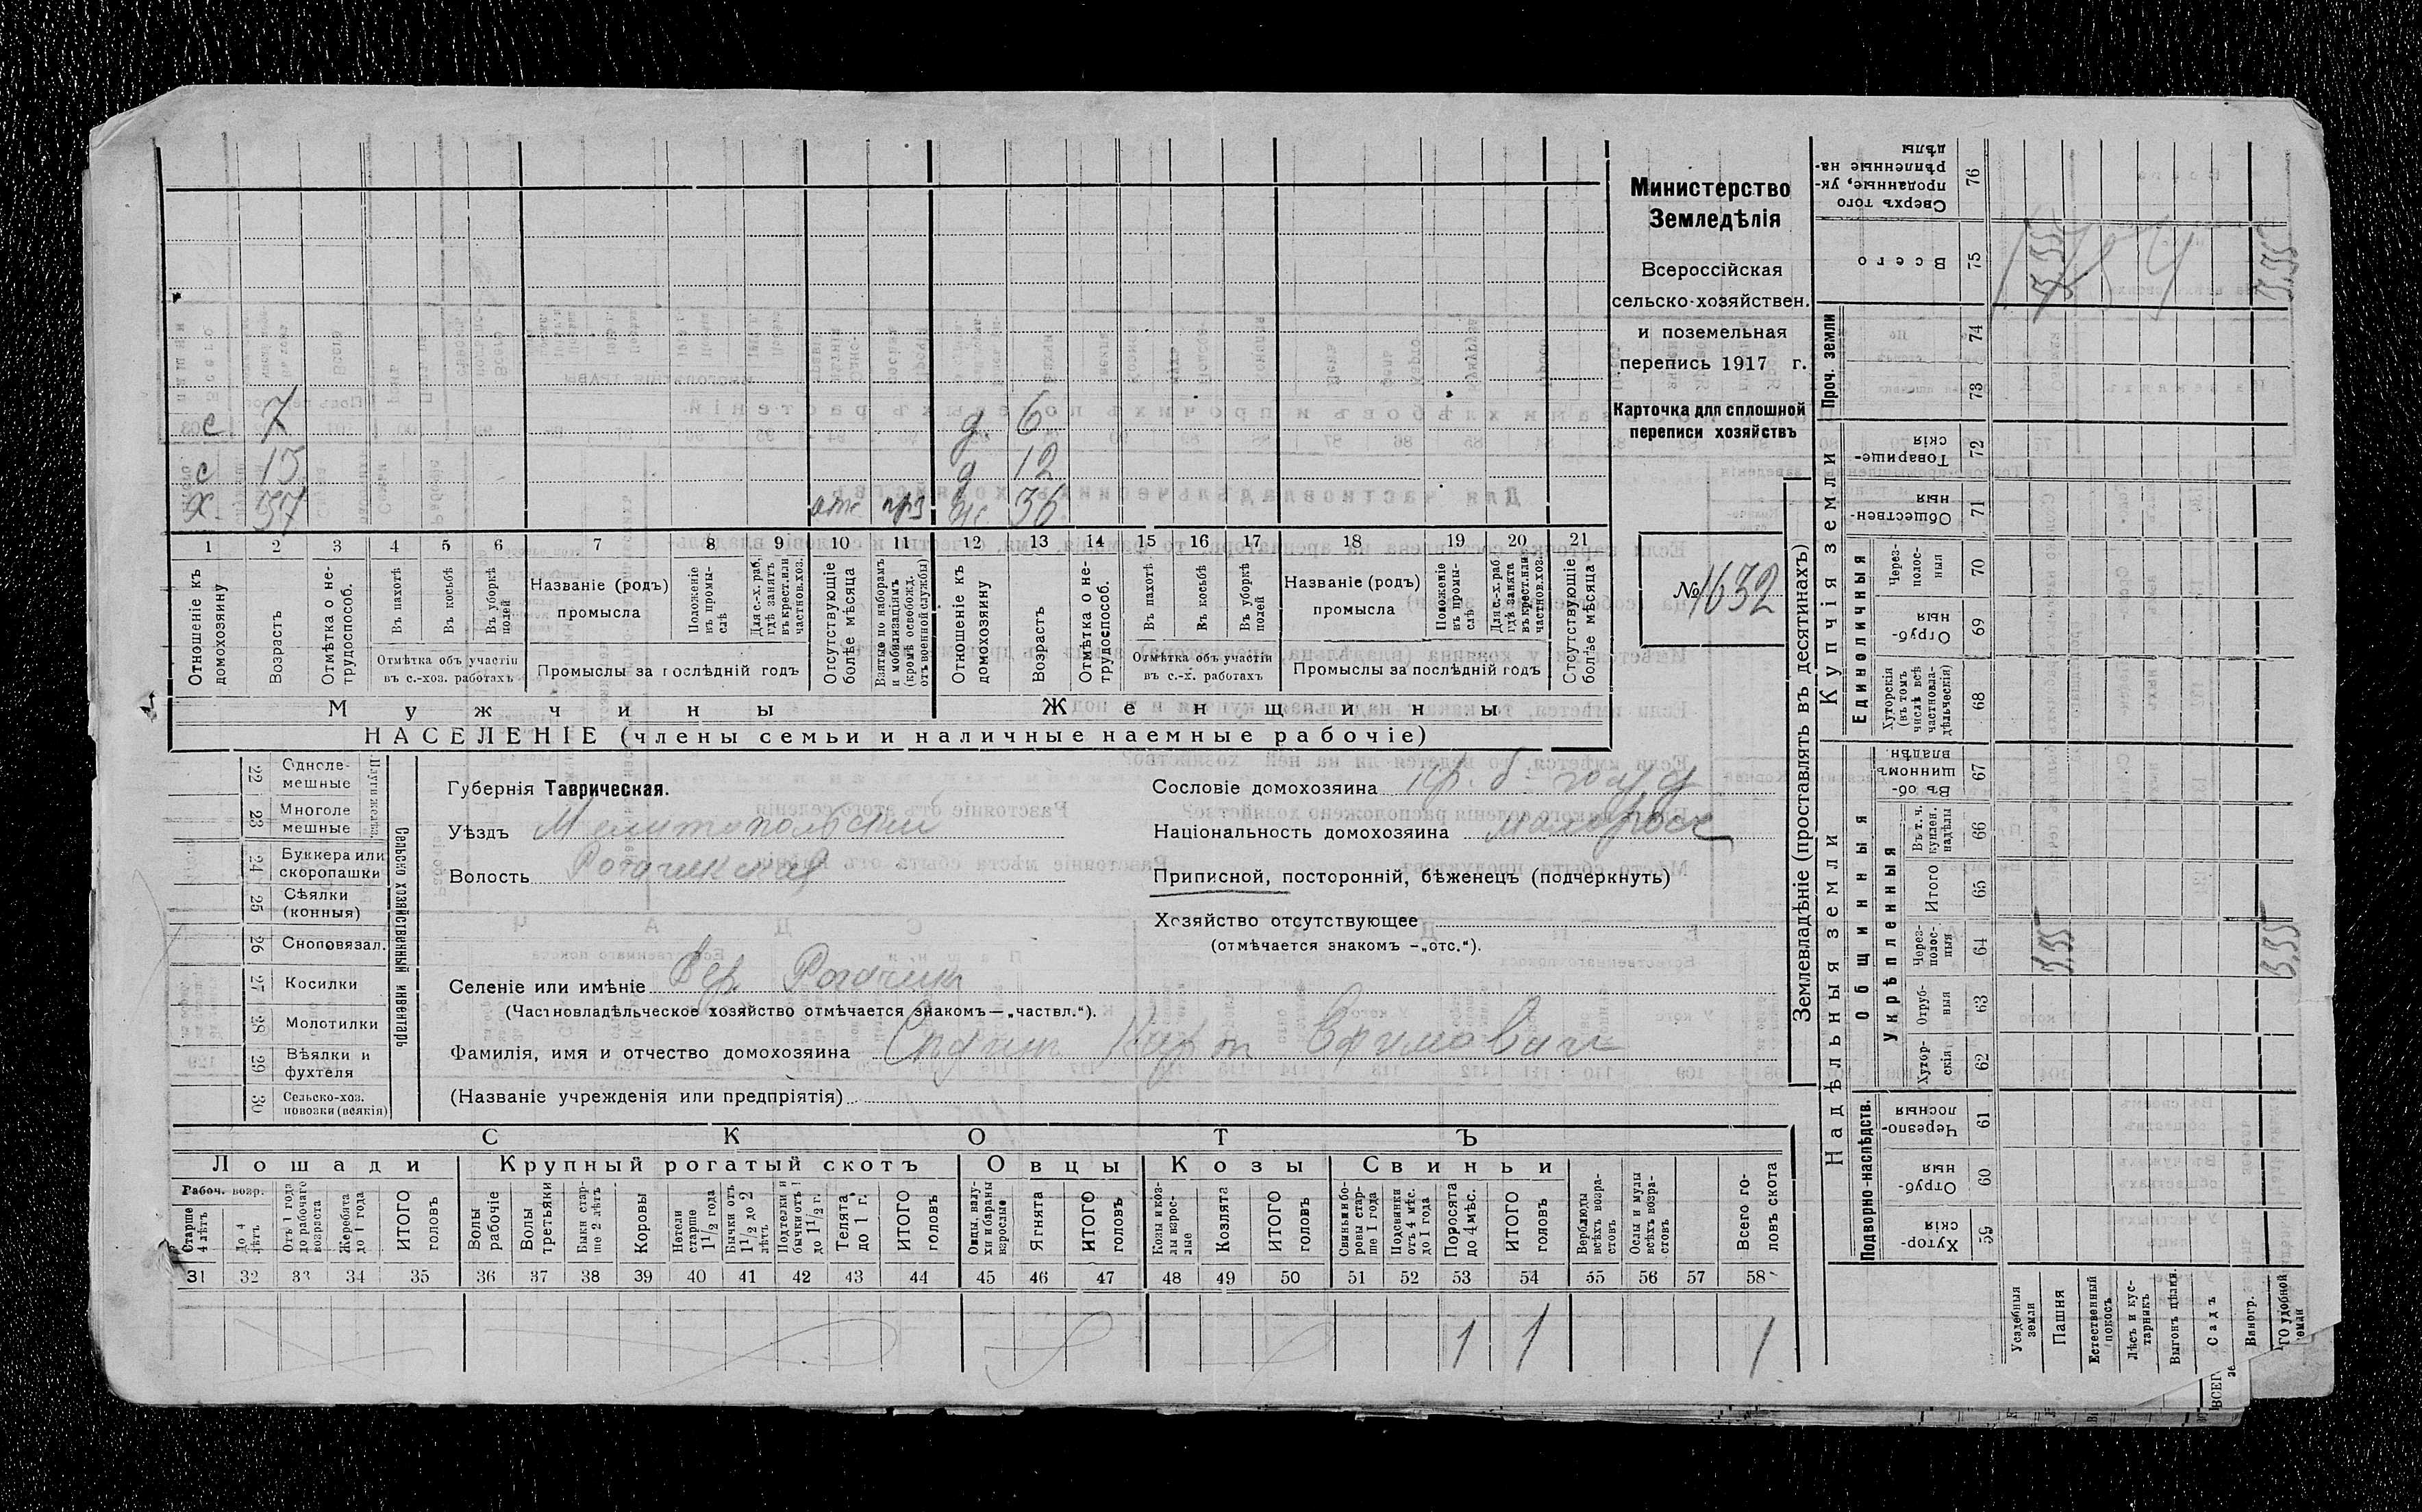 с 7 д 6
с 13 д 12
х 37 отс прз ж 36
1 2 3 4 5 6 7 8 9 10 11 12 13 14 15 16 17 18 19 20 21
Отношеніе къ домохозяину
Возрастъ
Отмѣтка о не-трудоспособ.
Въ пахотѣ
Въ косьбѣ
Въ уборкѣ полей
Отмѣтка объ участіи
въ с.-хоз. работахъ
Названіе (родъ)
промысла
Положеніе въ промы-слѣ
Для с.-х. раб. гдѣ занятъ въ крест. или частнов. хоз.
Промыслы за послѣдній годъ
Отсутствующіе болѣе мѣсяца
Взятые по наборамъ и мобилизаціямъ (кромѣ освобожд. отъ военной службы)
Отношеніе къ домохозяину
Возрастъ
Отмѣтка о не-трудоспособ.
Въ пахотѣ
Въ косьбѣ
Въ уборкѣ полей
Отмѣтка объ участіи
въ с.-х. работахъ
Названіе (родъ)
промысла
Положеніе въ промы-слѣ
Для с.-х. раб. гдѣ занята въ крест. или частнов. хоз.
Промыслы за послѣдній годъ
Отсутствующіе болѣе мѣсяца
Мужчины
Женщины
НАСЕЛЕНІЕ (члены семьи и наличные наемные рабочіе)
Министерство
Земледѣлія
Всероссійская
сельско-хозяйствен.
и поземельная
перепись 1917 г.
Карточка для сплошной
переписи хозяйствъ
№ 1632
Сельско хозяйственный инвентарь
22 Одноле-мешные
23 Многоле мешные
24 Буккера или скоропашки
25 Сѣялки (конныя)
26 Сноповязал.
27 Косилки
28 Молотилки
29 Вѣялки и фухтеля
30 Сельско-хоз. повозки (всякія)
Губернія Таврическая.
Уѣздъ Мелитопольскій
Волость Рогачикская
Селеніе или имѣніе Вер. Рогачик
(Частновладѣльческое хозяйство отмѣчается знакомъ — „частвл.“).
Фамилія, имя и отчество домохозяина
(Названіе учрежденія или предпріятія)
Сословіе домохозяина кр. б.
Національность домохозяина малоросс
Приписной, посторонній, бѣженецъ (подчеркнуть)
Хозяйство отсутствующее
(отмѣчается знакомъ — „отс.“).
СКОТЪ
Лошади
Крупный рогатый скотъ
Овцы
Козы
Свиньи
Рабоч. возр.
Старше 4 лѣтъ
До 4 лѣтъ
Отъ 1 года до рабочаго возраста
Жеребята до 1 года
ИТОГО головъ
Волы рабочіе
Волы третьяки
Быки стар-ше 2 лѣтъ
Коровы
Нетели старше 1½ года
Бычки отъ 1½ до 2 лѣтъ
Подтелки и бычки отъ 1 до 1½ г.
Телята до 1 г.
ИТОГО головъ
Овцы, валу-хи и бараны взрослые
Ягнята
ИТОГО головъ
Козы и коз-лы взрос-лые
Козлята
ИТОГО головъ
Свиньи и бо-ровы стар-ше 1 года
Подсвинки отъ 4 мѣс. до 1 года
Поросята до 4 мѣс.
ИТОГО головъ
Верблюды всѣхъ возра-стовъ
Ослы и мулы всѣхъ возра-стовъ
Всего го-ловъ скота
31 32 33 34 35 36 37 38 39 40 41 42 43 44 45 46 47 48 49 50 51 52 53 54 55 56 57 58
1 1 1
Землевладѣніе (проставлять въ десятинахъ)
Надѣльныя земли
Купчія земли
Проч. земли
Подворно-наслѣдств.
Общинныя
Укрѣпленныя
Единоличныя
Сверхъ того проданные, ук-рѣпленные на-дѣлы 76
Всего 75
74
73
Товарище-скія 72
Обществен-ныя 71
Через-полос-ныя 70
Отруб-ныя 69
Хуторскія (въ томъ числѣ всѣ частновла-дѣльческія) 68
Въ об-щинномъ владѣн. 67
Въ т. ч. куплен. надѣлы 66
Итого 65
Через-полос-ныя 64 3,35 3,35
Отруб-ныя 63
Хутор-скія 62
Черезпо-лосныя 61
Отруб-ныя 60
Хутор-скія 59
Усадебныя земли
Пашня
Естественный покосъ
Лѣсъ и кус-тарникъ
Выгонъ цѣлин.
Садъ
Виногр.